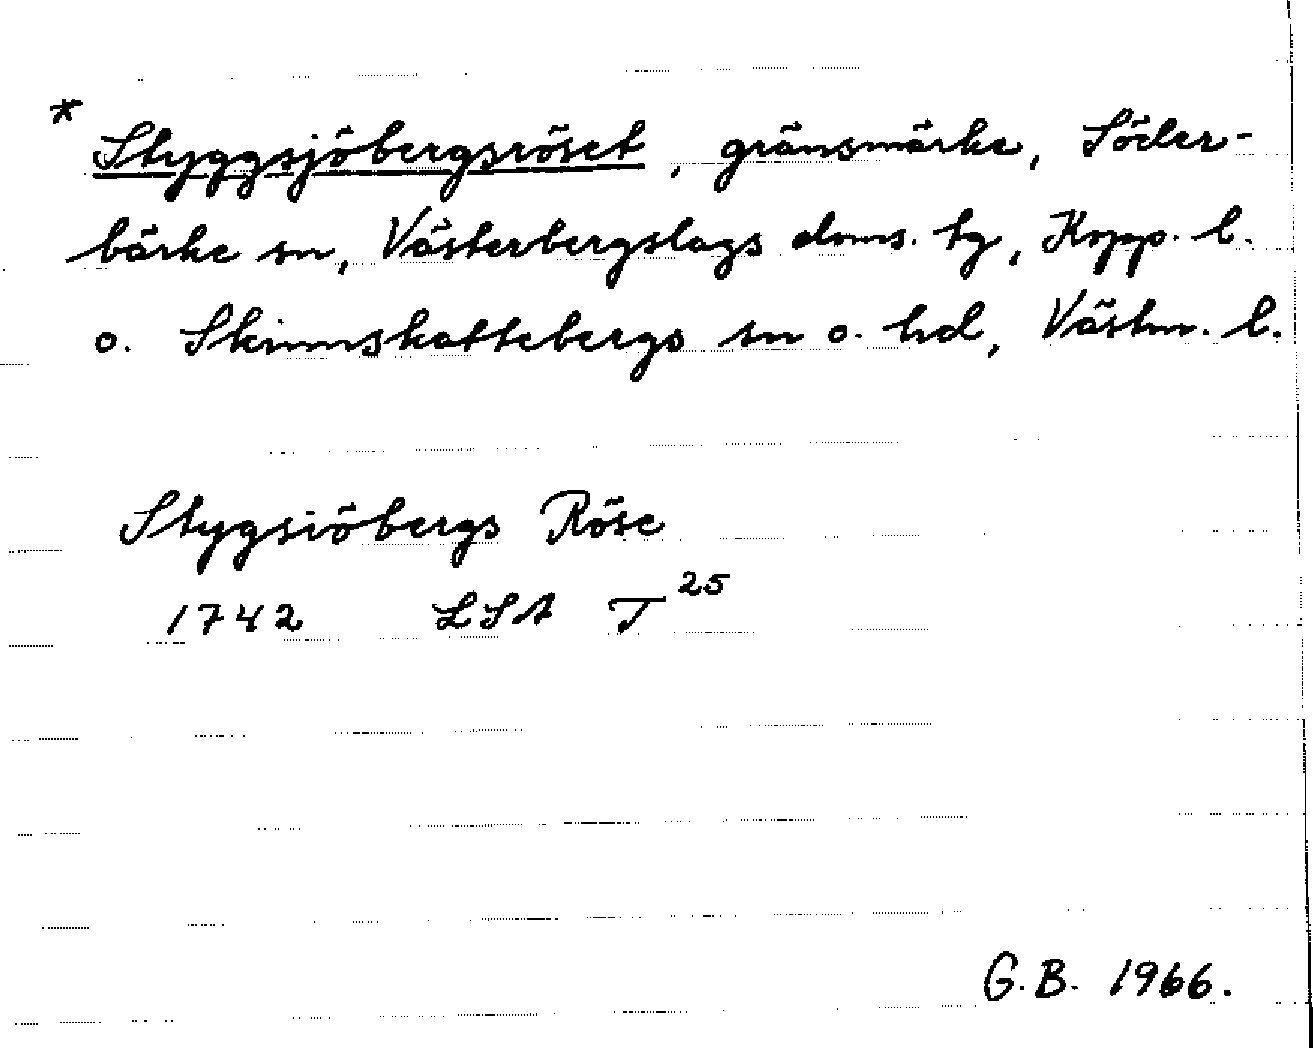 * Styggsjöbergsröset, gränsmärke, Söder-
bärke sn, Västerbergslags doms. tg, Kopp. l.
o. Skinnskattebergs sn o. hd, Västm. l.
Stygsiöbergs Röse
1742 LSA T 25
G.B. 1966.